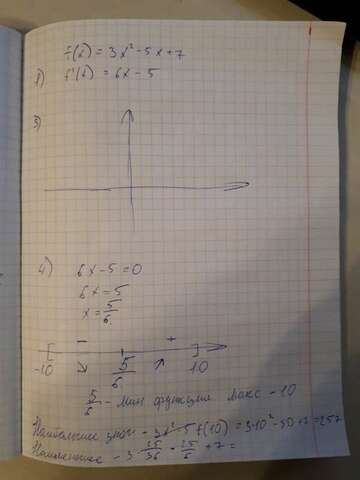 f(x) = 3x² - 5x + 7
1) f'(x) = 6x - 5
3)
4) 6x - 5 = 0
6x = 5
x = 5/6
- +
-10 ↘ 5/6 ↗ 10
5/6 - мин функции макс - 10
Наибольшее знач - f(10) = 3·10² - 50 + 7 = 257
Наименьшее - 3·25/36 - 25/6 + 7 =